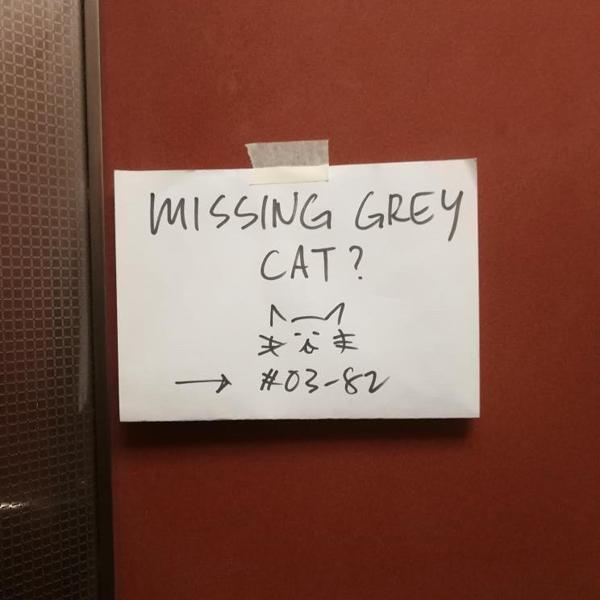 MISSING GREY
CAT?
→ #03-82